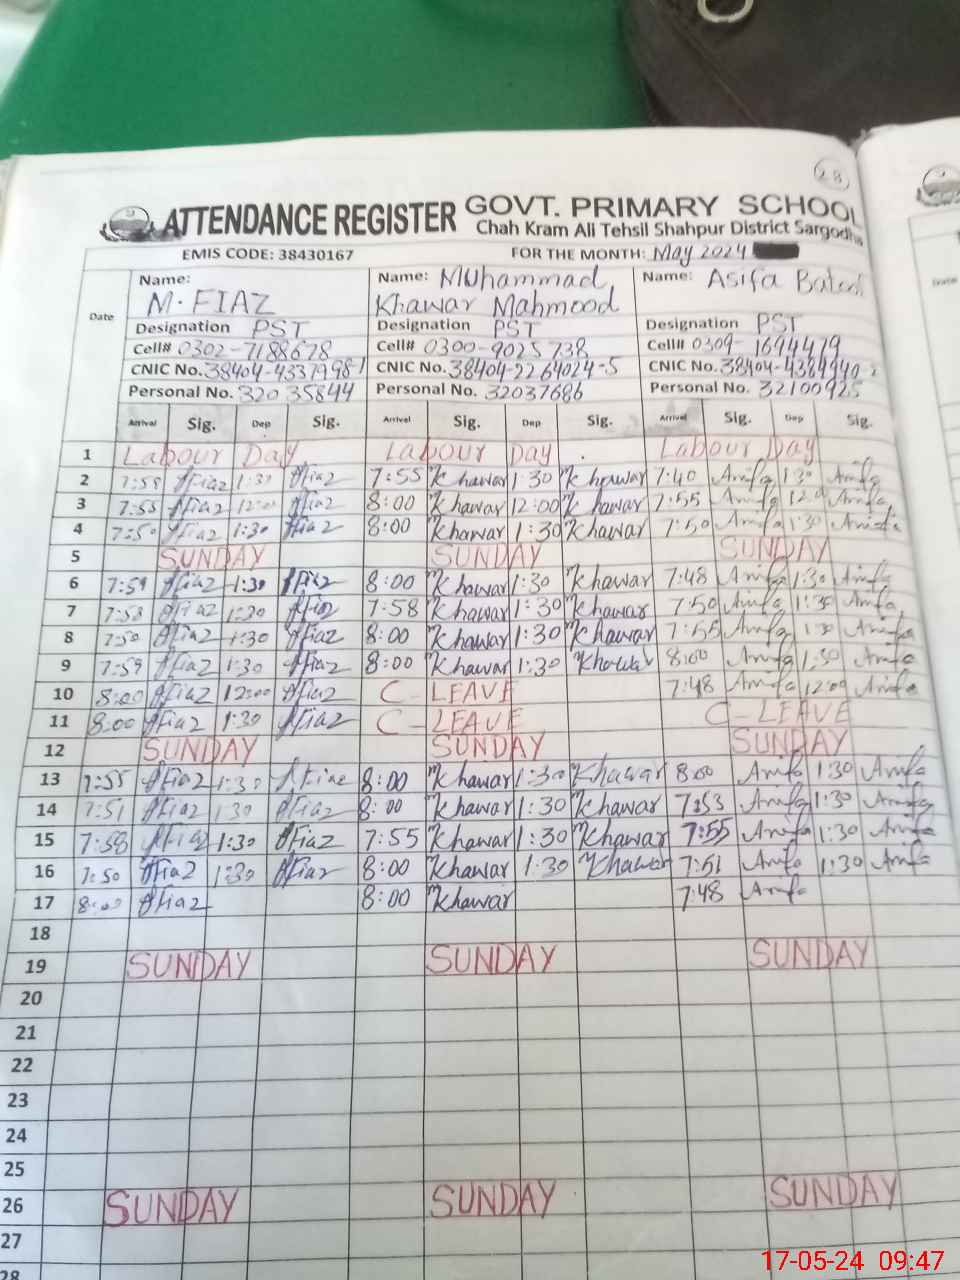 28
ATTENDANCE REGISTER GOVT. PRIMARY SCHOOL
Chah Kram Ali Tehsil Shahpur District Sargodha
EMIS CODE: 38430167 FOR THE MONTH: May 2024
Date Name: M. FIAZ Name: Muhammad Khawar Mahmood Name: Asifa
Designation PST Designation PST Designation PST
Cell# 0302-7188678 Cell# 0300-9025738 Cell# 0309-1694479
CNIC No. 38404-4337998-1 CNIC No. 38404-2264024-5 CNIC No. 38404-4384940-2
Personal No. 32035844 Personal No. 32037686 Personal No. 32100925
Arrival Sig. Dep Sig. Arrival Sig. Dep Sig. Arrival Sig. Dep Sig.
1 Labour Day Labour Day Labour Day
2 7:58 Afiaz 1:30 Afiaz 7:55 Khawar 1:30 Khawar 7:40 1:30
3 7:55 Afiaz 12:00 Afiaz 8:00 Khawar 12:00 Khawar 7:55 12:00
4 7:50 Afiaz 1:30 Afiaz 8:00 Khawar 1:30 Khawar 7:50 1:30
5 SUNDAY SUNDAY SUNDAY
6 7:59 Afiaz 1:30 Afiaz 8:00 Khawar 1:30 Khawar 7:48 1:30
7 7:58 Afiaz 1:30 Afiaz 7:58 Khawar 1:30 Khawar 7:50 1:30
8 7:50 Afiaz 1:30 Afiaz 8:00 Khawar 1:30 Khawar 7:55 1:30
9 7:59 Afiaz 1:30 Afiaz 8:00 Khawar 1:30 Khawar 8:00 1:30
10 8:00 Afiaz 12:00 Afiaz C-LEAVE 7:48 12:00
11 8:00 Afiaz 1:30 Afiaz C-LEAVE C-LEAVE
12 SUNDAY SUNDAY SUNDAY
13 7:55 Afiaz 1:30 Afiaz 8:00 Khawar 1:30 Khawar 8:00 1:30
14 7:51 Afiaz 1:30 Afiaz 8:00 Khawar 1:30 Khawar 7:53 1:30
15 7:58 Afiaz 1:30 Afiaz 7:55 Khawar 1:30 Khawar 7:55 1:30
16 7:50 Afiaz 1:30 Afiaz 8:00 Khawar 1:30 Khawar 7:51 1:30
17 8:00 Afiaz 8:00 Khawar 7:48
18
19 SUNDAY SUNDAY SUNDAY
20
21
22
23
24
25
26 SUNDAY SUNDAY SUNDAY
27
28
Date
17-05-24 09:47